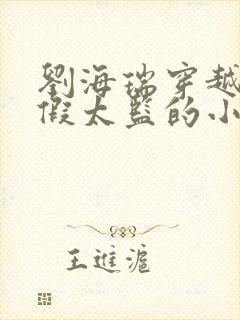 劉海瑞穿越
假太監的小
王進滬